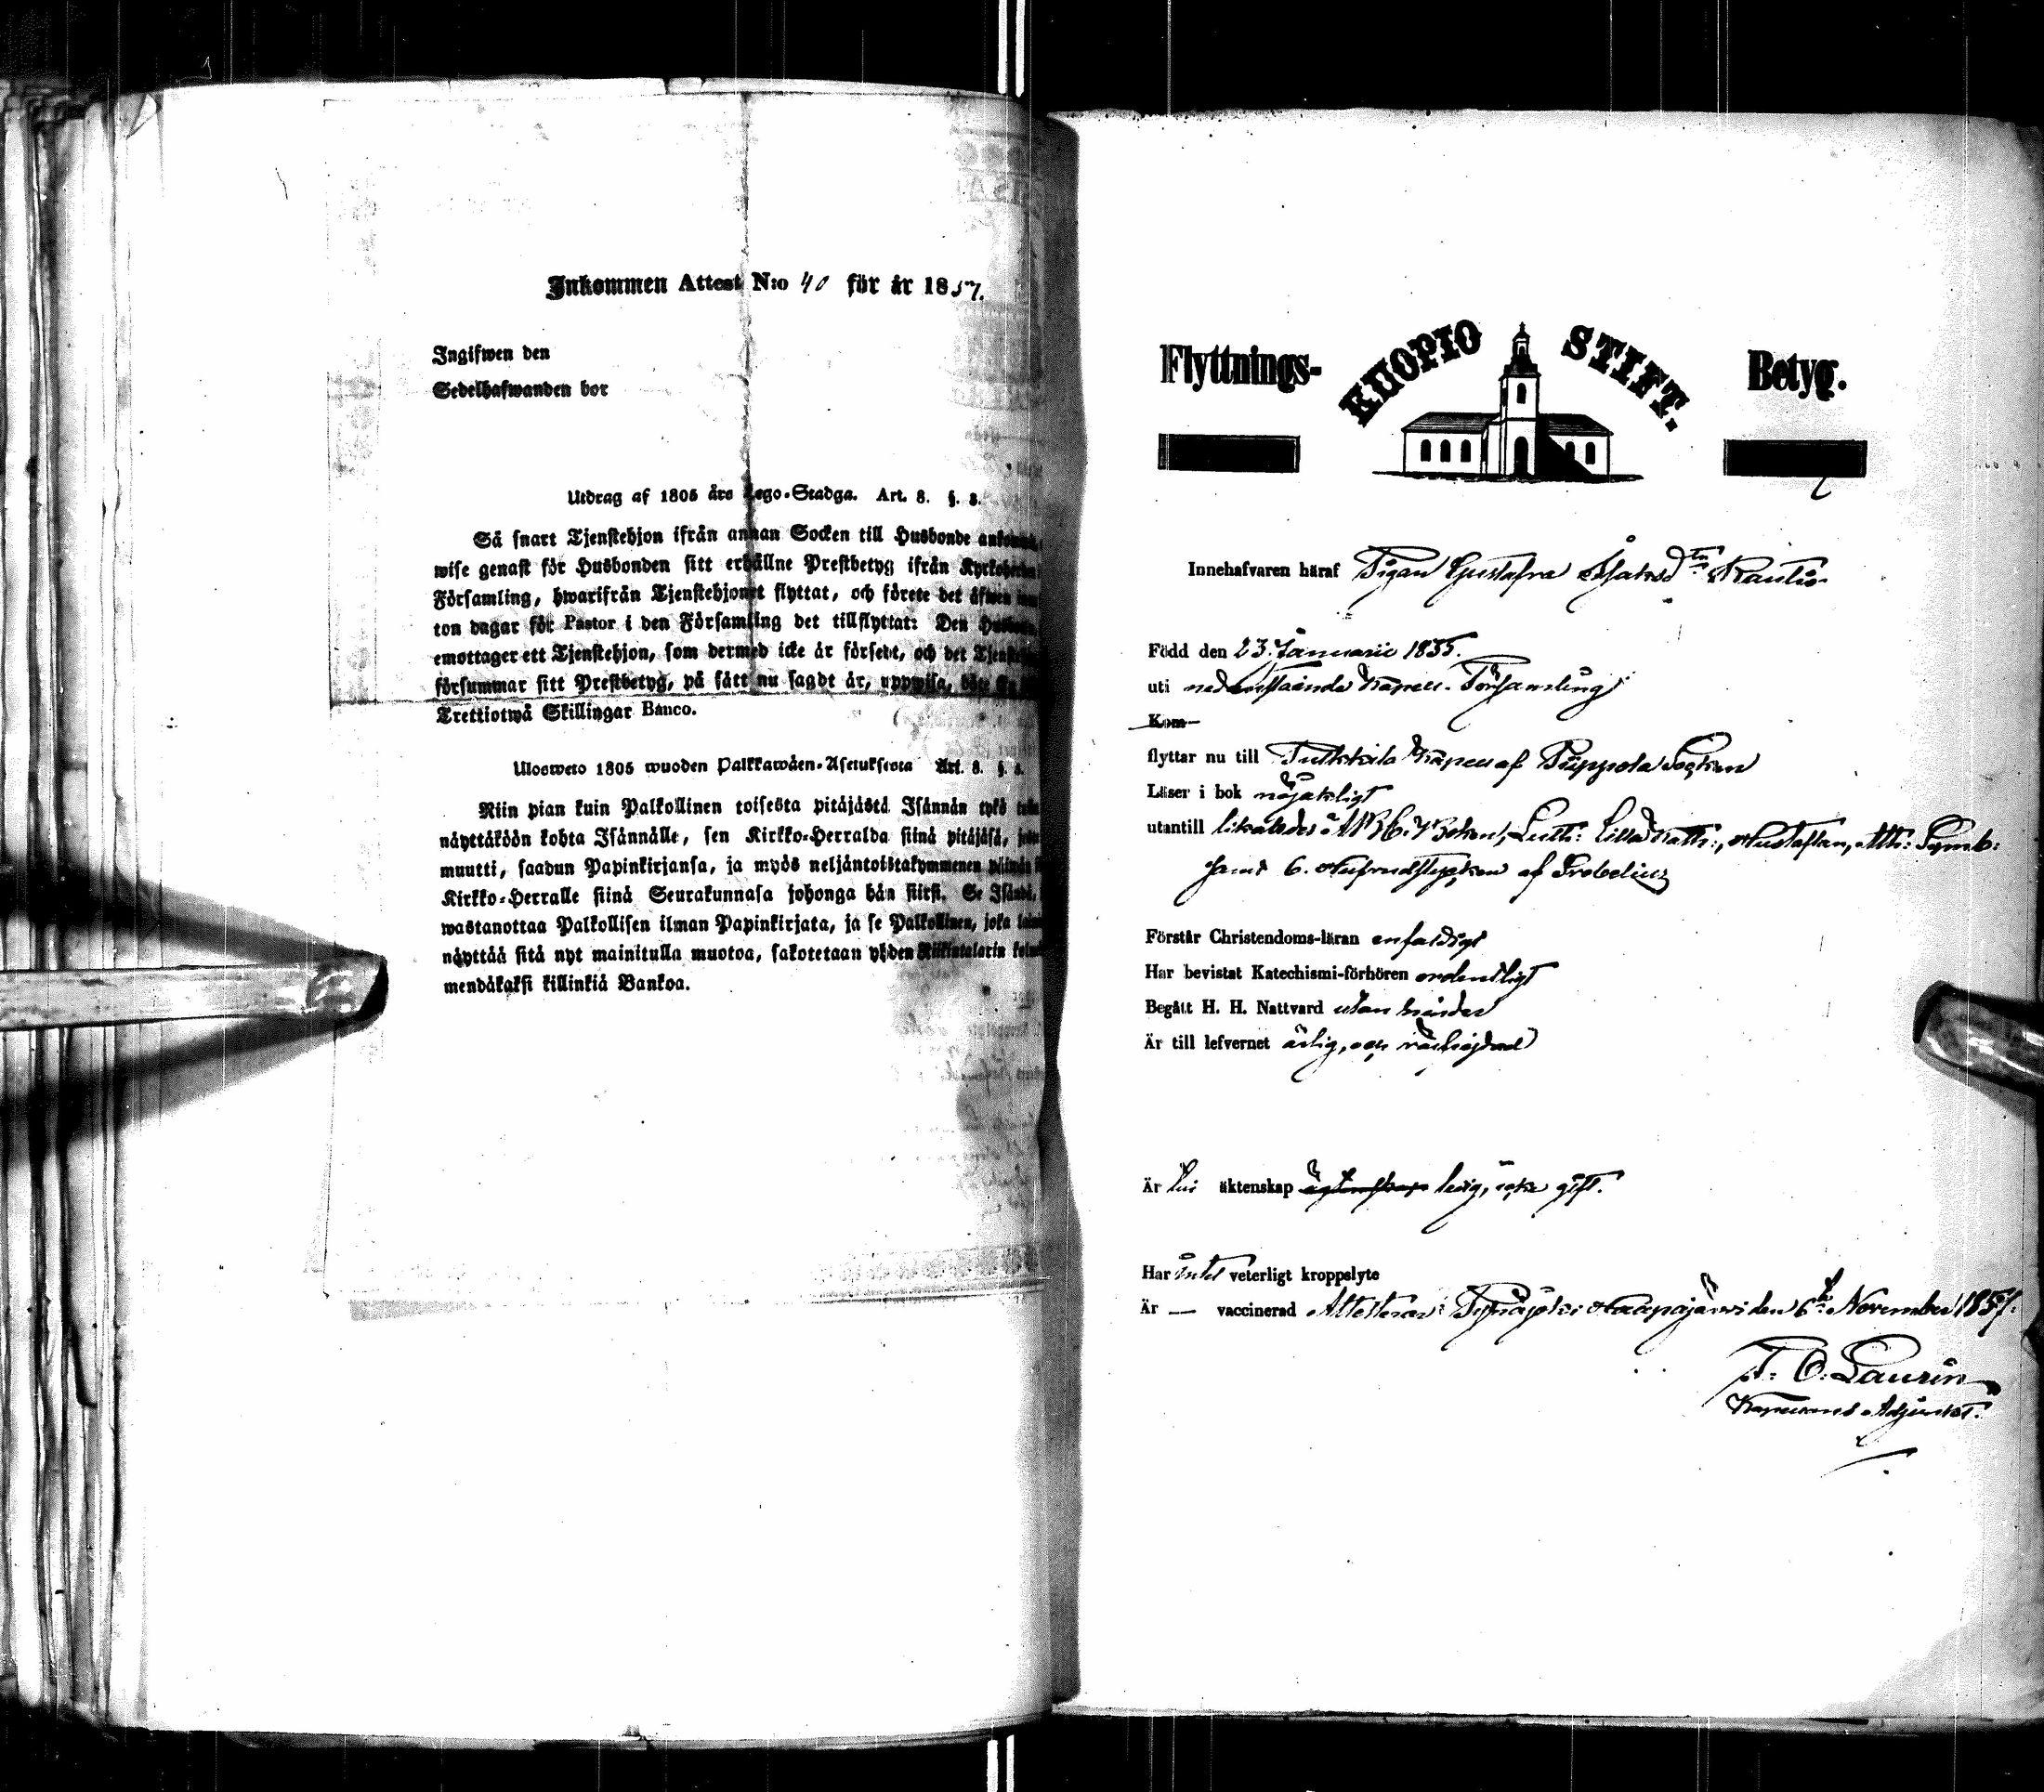 Inkommen Attest N:o 40 för år 1857.
Ingifwen den
Sedelhafwanden bor
Utdrag af 1805 års Lego-Stadga. Art. 8. §. 8.
Så snart Tjenstehjon ifrån annan Socken till Husbonde
wise genast för Husbonden sitt erhållne Prestbetyg ifrån
Församling, hwarifrån Tjenstehjonet flyttat, och förete det äfwen
ton dagar för Pastor i den Församling det tillflyttat: Den
emottager ett Tjenstehjon, som dermed icke är försedt, och det
försummar sitt Prestbetyg, på sätt nu sagdt är, uppwisa, böte
Trettiotwå Skillingar Banco.
Ulosweto 1805 wuoden Palkkawäen-Asetuksesta Art. 8. §. 8.
Niin pian kuin Palkollinen toisesta pitäjästä Isännän tykö
näyttäköön kohta Isännälle, sen Kirkko-Herralda siinä pitäjäsä,
muutti, saadun Papinkirjansa, ja myös neljäntoistakymmenen
Kirkko-Herralle siinä Seurakunnasa johonga hän siirsi. Se Isändä,
wastanottaa Palkollisen ilman Papinkirjata, ja se Palkollinen, joka
näyttää sitä nyt mainitulla muotoa, sakotetaan yhden Riikintalarin
mendäkaksi killinkiä Bankoa.
Flyttnings- KUOPIO STIFT. Betyg.
Innehafvaren häraf Pigan Gustafva Rautio
Född den 23. Januarii 1835.
uti nedanstående Kapell-Församling
Kom
flyttar nu till Pulkkila Kapell af Piippola Socken
Läser i bok nöjaktligt
utantill likaledes ABC-Boken, Luth: Lilla Kath:, Hustaflan, Ath: Symb:
samt 6. Hufvudstycken af Svebelius
Förstår Christendoms-läran enfaldigt
Har bevistat Katechismi-förhören ordentligt
Begått H. H. Nattvard utan hinder
Är till lefvernet ärlig, och
Är till äktenskap ledig, icke gift.
Har intet veterligt kroppslyte
Är — vaccinerad Attesterar Haapajärvi den 6te November 1857.
Laurin
Kapellans Adjunkt.